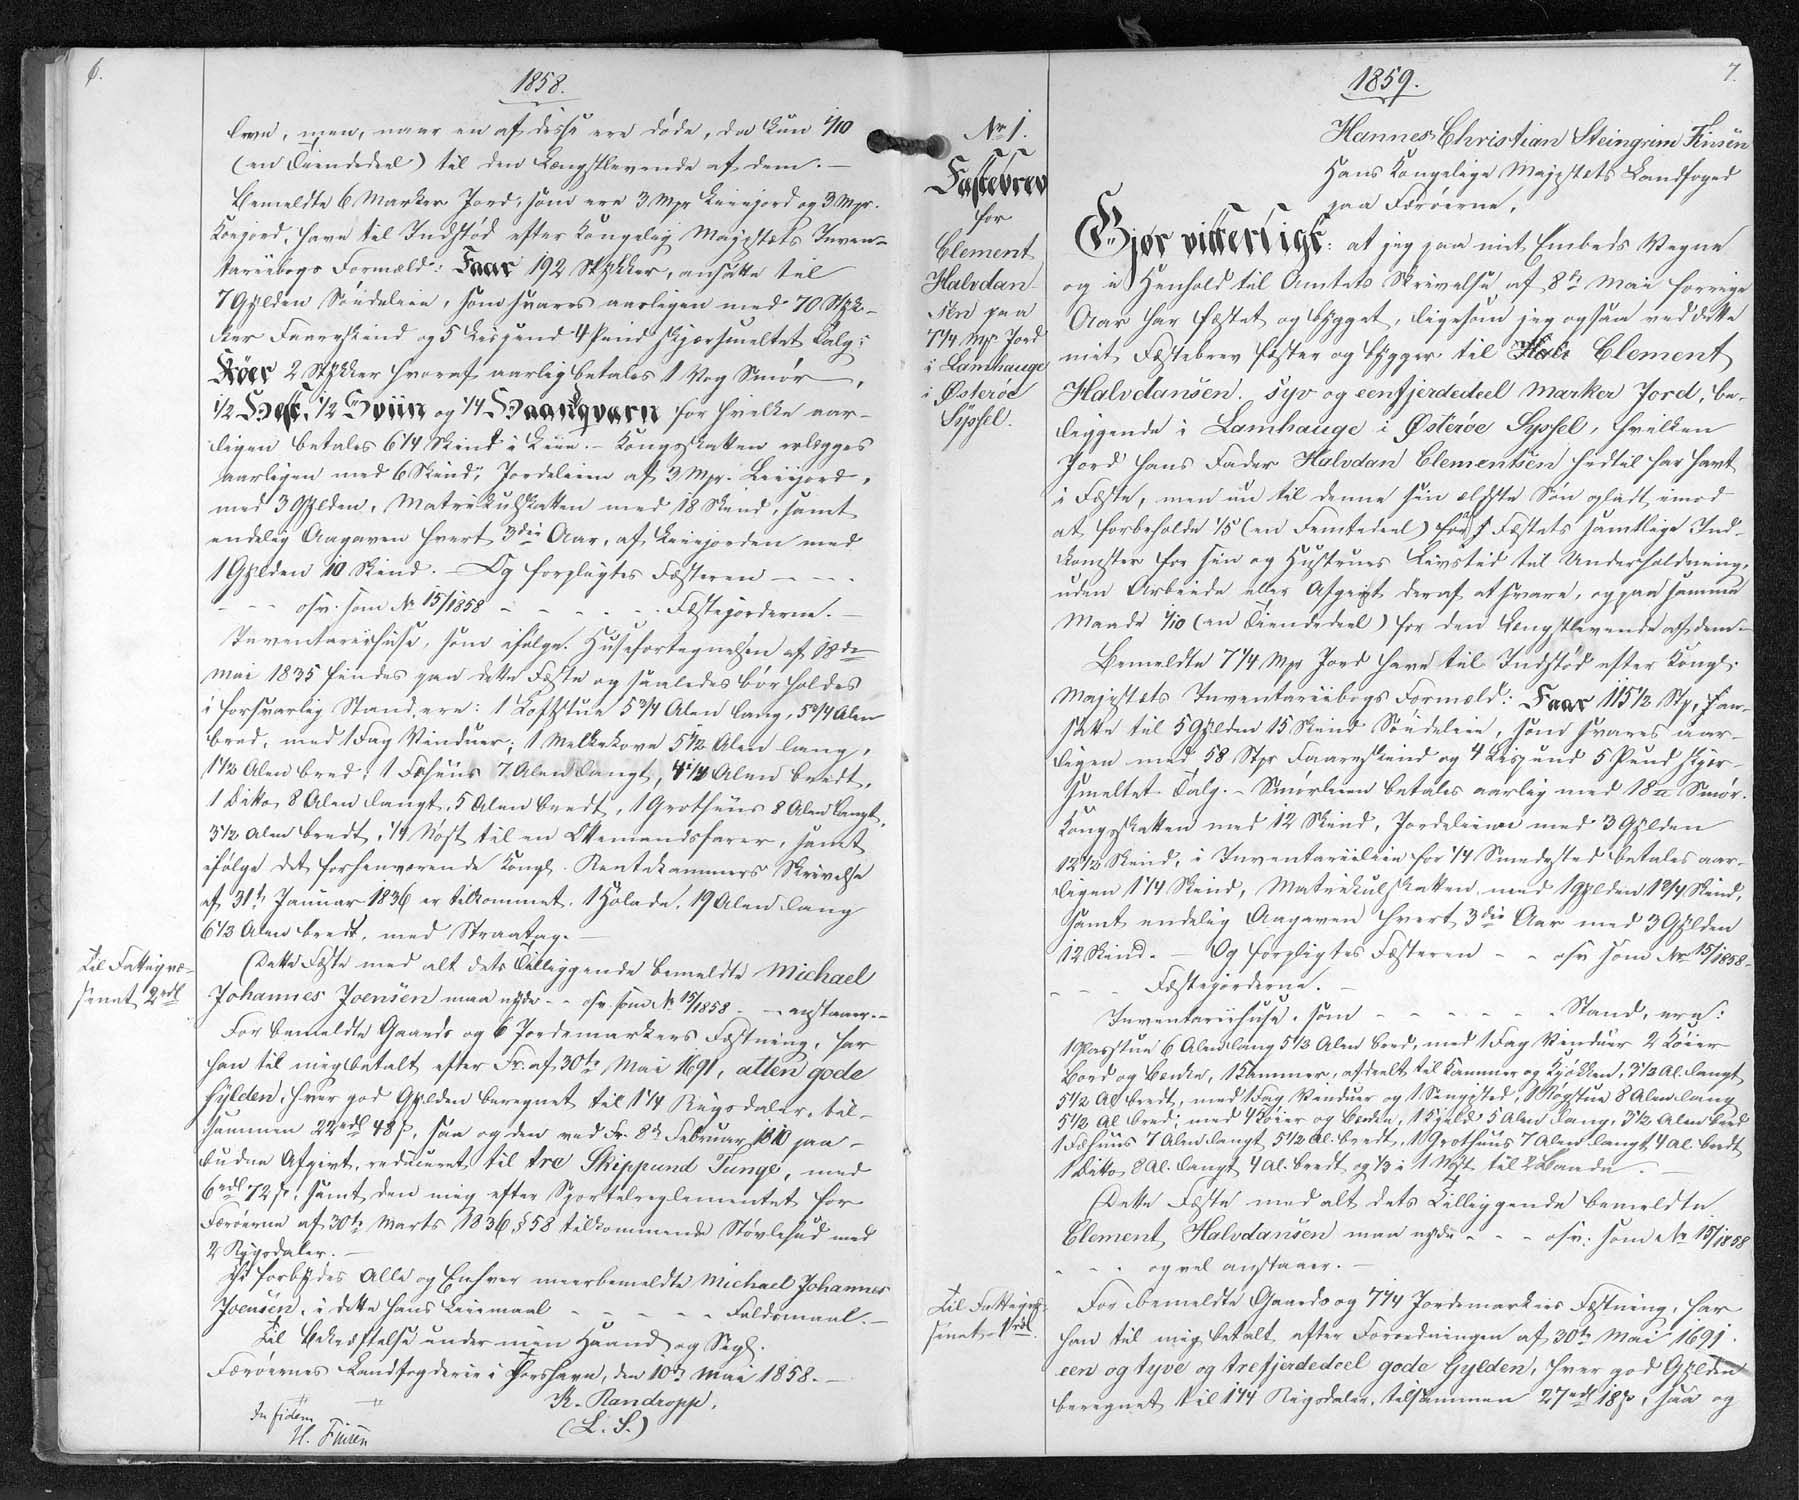 6.
1858.
leve, men, naar en af disse ere døde, da kun 1/10
(en Tiendedeel) til den Længstlevende af dem. —
Bemeldte 6 Marker Jord, som ere 3 Mpr Leiejord og 3 Mpr.
Konjord, have til Indstød efter Kongelig Majestæts Inven-
tariibogs Formæld: Faar 192 Stykker, ansatte til
7 Gylden Søudeleie, som svares aarligen med 70 Styk-
ker Faareskind og 5 Lispund 4 Pund skjærsmeltet Talg;
Køer 2 Stykker hvoraf aarlig betales 1 Vog Smør,
1/2 Hest, 1/2 Sviin og 1/4 Haandqvarn for hvilke aar-
ligen betales 6 1/4 Skind i Leie. — Kongsskatten erlægges
aarligen med 6 Skind, Jordeleien af 3 Mpr. Leiejord,
med 3 Gylden, Matrikulskatten med 18 Skind, samt
endelig Aagaven hvert 3die Aar, af Leiejorden med
1 Gylden 10 Skind. — Og forpligtes Fæsteren - - -
- - - osv. som No 15/1858 - - - - - Fæstejorderne. —
Inventariihuse, som ifølge Husefortegnelsen af 18de
Mai 1835 findes paa dette Fæste og saaledes bør holdes
i forsvarlig Stand, ere: 1 Loftstue 5 3/4 Alen lang, 5 3/4 Alen
bred, med 1 Fag Vinduer; 1 Melkekove 5 1/2 Alen lang,
1 1/2 Alen bred; 1 Fæhuus 7 Alen langt, 4 1/3 Alen bredt,
1 Ditto 8 Alen langt, 5 Alen bredt, 1 Grothuus 8 Alen langt,
3 1/2 Alen bredt, 1/4 Nøst til en Ottemandsfarer, samt
ifølge det forhenværende Kongl. Rentekammers Skrivelse
af 31te Januar 1836 er tilkommet 1 Hølade, 19 Alen lang
6 1/3 Alen bredt, med Straatag. —
Til Fattigvæ-
senet 2 rdl
Dette Fæste med alt dets Tilliggende bemeldte Michael
Johannes Joensen maa nyde - - osv. som No 15/1858 - - anstaaer. —
For bemeldte Gaards og 6 Jordemarkers Fæstning, har
han til mig betalt efter Fr. af 30te Mai 1691, atten gode
Gylden, hver god Gylden beregnet til 1 1/4 Rigsdaler, til-
sammen 22 rdl 48 s, saa og den ved Fr. 8de Februar 1810 paa-
budne Afgivt, reduceret til tre Skippund Tunge, med
6 rdl 72 s, samt den mig efter Sportelreglementet for
Færøerne af 30te Marts 1836 § 58 tilkommende Støvlehud med
2 Rigsdaler. —
Thi forbydes Alle og Enhver meerbemeldte Michael Johannes
Joensen, i dette hans Leiemaal - - - - - Faldsmaal. —
Til Bekræftelse under min Haand og Segl.
Færøernes Landfogderie i Thorshavn, den 10de Mai 1858. —
K. Randropp.
(L. S.)
In fidem
H. Finsen
7.
1859.
No 1.
Fæstebrev
for
Clement
Halvdan-
sen paa
7 1/4 Mp Jord
i Lamhauge
i Østerøe
Syssel.
Hannes Christian Steingrim Finsen
Hans Kongelige Majestæts Landfoged
paa Færøerne,
Gjør vitterligt: at jeg paa mit Embeds Vegne
og i Henhold til Amtets Skrivelse af 8de Mai forrige
Aar har fæstet og bygget, ligesom jeg ogsaa ved dette
mit Fæstebrev fæster og bygger til Clement
Halvdansen, syv og eenfjerdedeel Marker Jord, be-
liggende i Lamhauge i Østerøe Syssel, hvilken
Jord hans Fader Halvdan Clementsen hidtil har havt
i Fæste, men nu til denne sin ældste Søn opladt, imod
at forbeholde 1/5 (en Femtedeel) af Fæstets samtlige Ind-
komster for sin og Hustrues Livstid til Underholdning,
uden Arbeide eller Afgivt deraf at svare, og paa samme
Maade 1/10 (en Tiendedeel) for den Længstlevende af dem. —
Bemeldte 7 1/4 Mpr Jord have til Indstød efter Kongl.
Majestæts Inventariibogs Formæld: Faar 115 1/2 Stp, an-
satte til 5 Gylden 15 Skind Søudeleie, som svares aar-
ligen med 58 Stpr Faareskind og 4 Lispund 5 Pund skjær-
smeltet Talg. — Smørleien betales aarlig med 18 ℔ Smør.
Kongsskatten med 12 Skind, Jordeleien med 3 Gylden
12 1/2 Skind, i Inventariileie for 1/4 Smedested betales aar-
ligen 1 1/4 Skind, Matrikulskatten med 1 Gylden 1 3/4 Skind,
samt endelig Aagaven hvert 3die Aar med 3 Gylden
12 Skind. — Og forpligtes Fæsteren - - osv som No 15/1858 -
- - - Fæstejorderne. —
Inventariihuse, som - - - - - - Stand, ere:
1 Roegstue 6 Alen lang 5 1/3 Alen bred, med 1 Fag Vinduer 2 Køier
Bord og Bænke, 1 Kammer, afdeelt til Kammer og Kjøkken, 3 1/2 Al. langt
5 1/2 Al bredt, med 1 Fag Vinduer og 1 Sengested, 1 Røgstue 8 Alen lang
5 1/2 Al bred; med 4 Køier og Bænke, 1 Hjeld 5 Alen lang, 3 1/2 Alen bred
1 Fæhuus 7 Alen langt, 5 1/2 Al. bredt, 1 Grothuus 7 Alen langt, 4 Al. bredt
1 Ditto 8 Al. langt 4 Al. bredt og 1/3 i 1 Nøst til 2 Baade. —
Dette Fæste med alt dets Tilliggende bemeldte
Clement Halvdansen maa nyde - - - osv. som No 15/1858
- - - og vel anstaaer. —
Til Fattigvæ-
senet 1 rdl.
For bemeldte Gaards og 7 1/4 Jordemarkers Fæstning, har
han til mig betalt efter Forordningen af 30te Mai 1691
een og tyve og trefjerdedeel gode Gylden, hver god Gylden
beregnet til 1 1/4 Rigsdaler, tilsammen 27 rdl 18 s, saa og